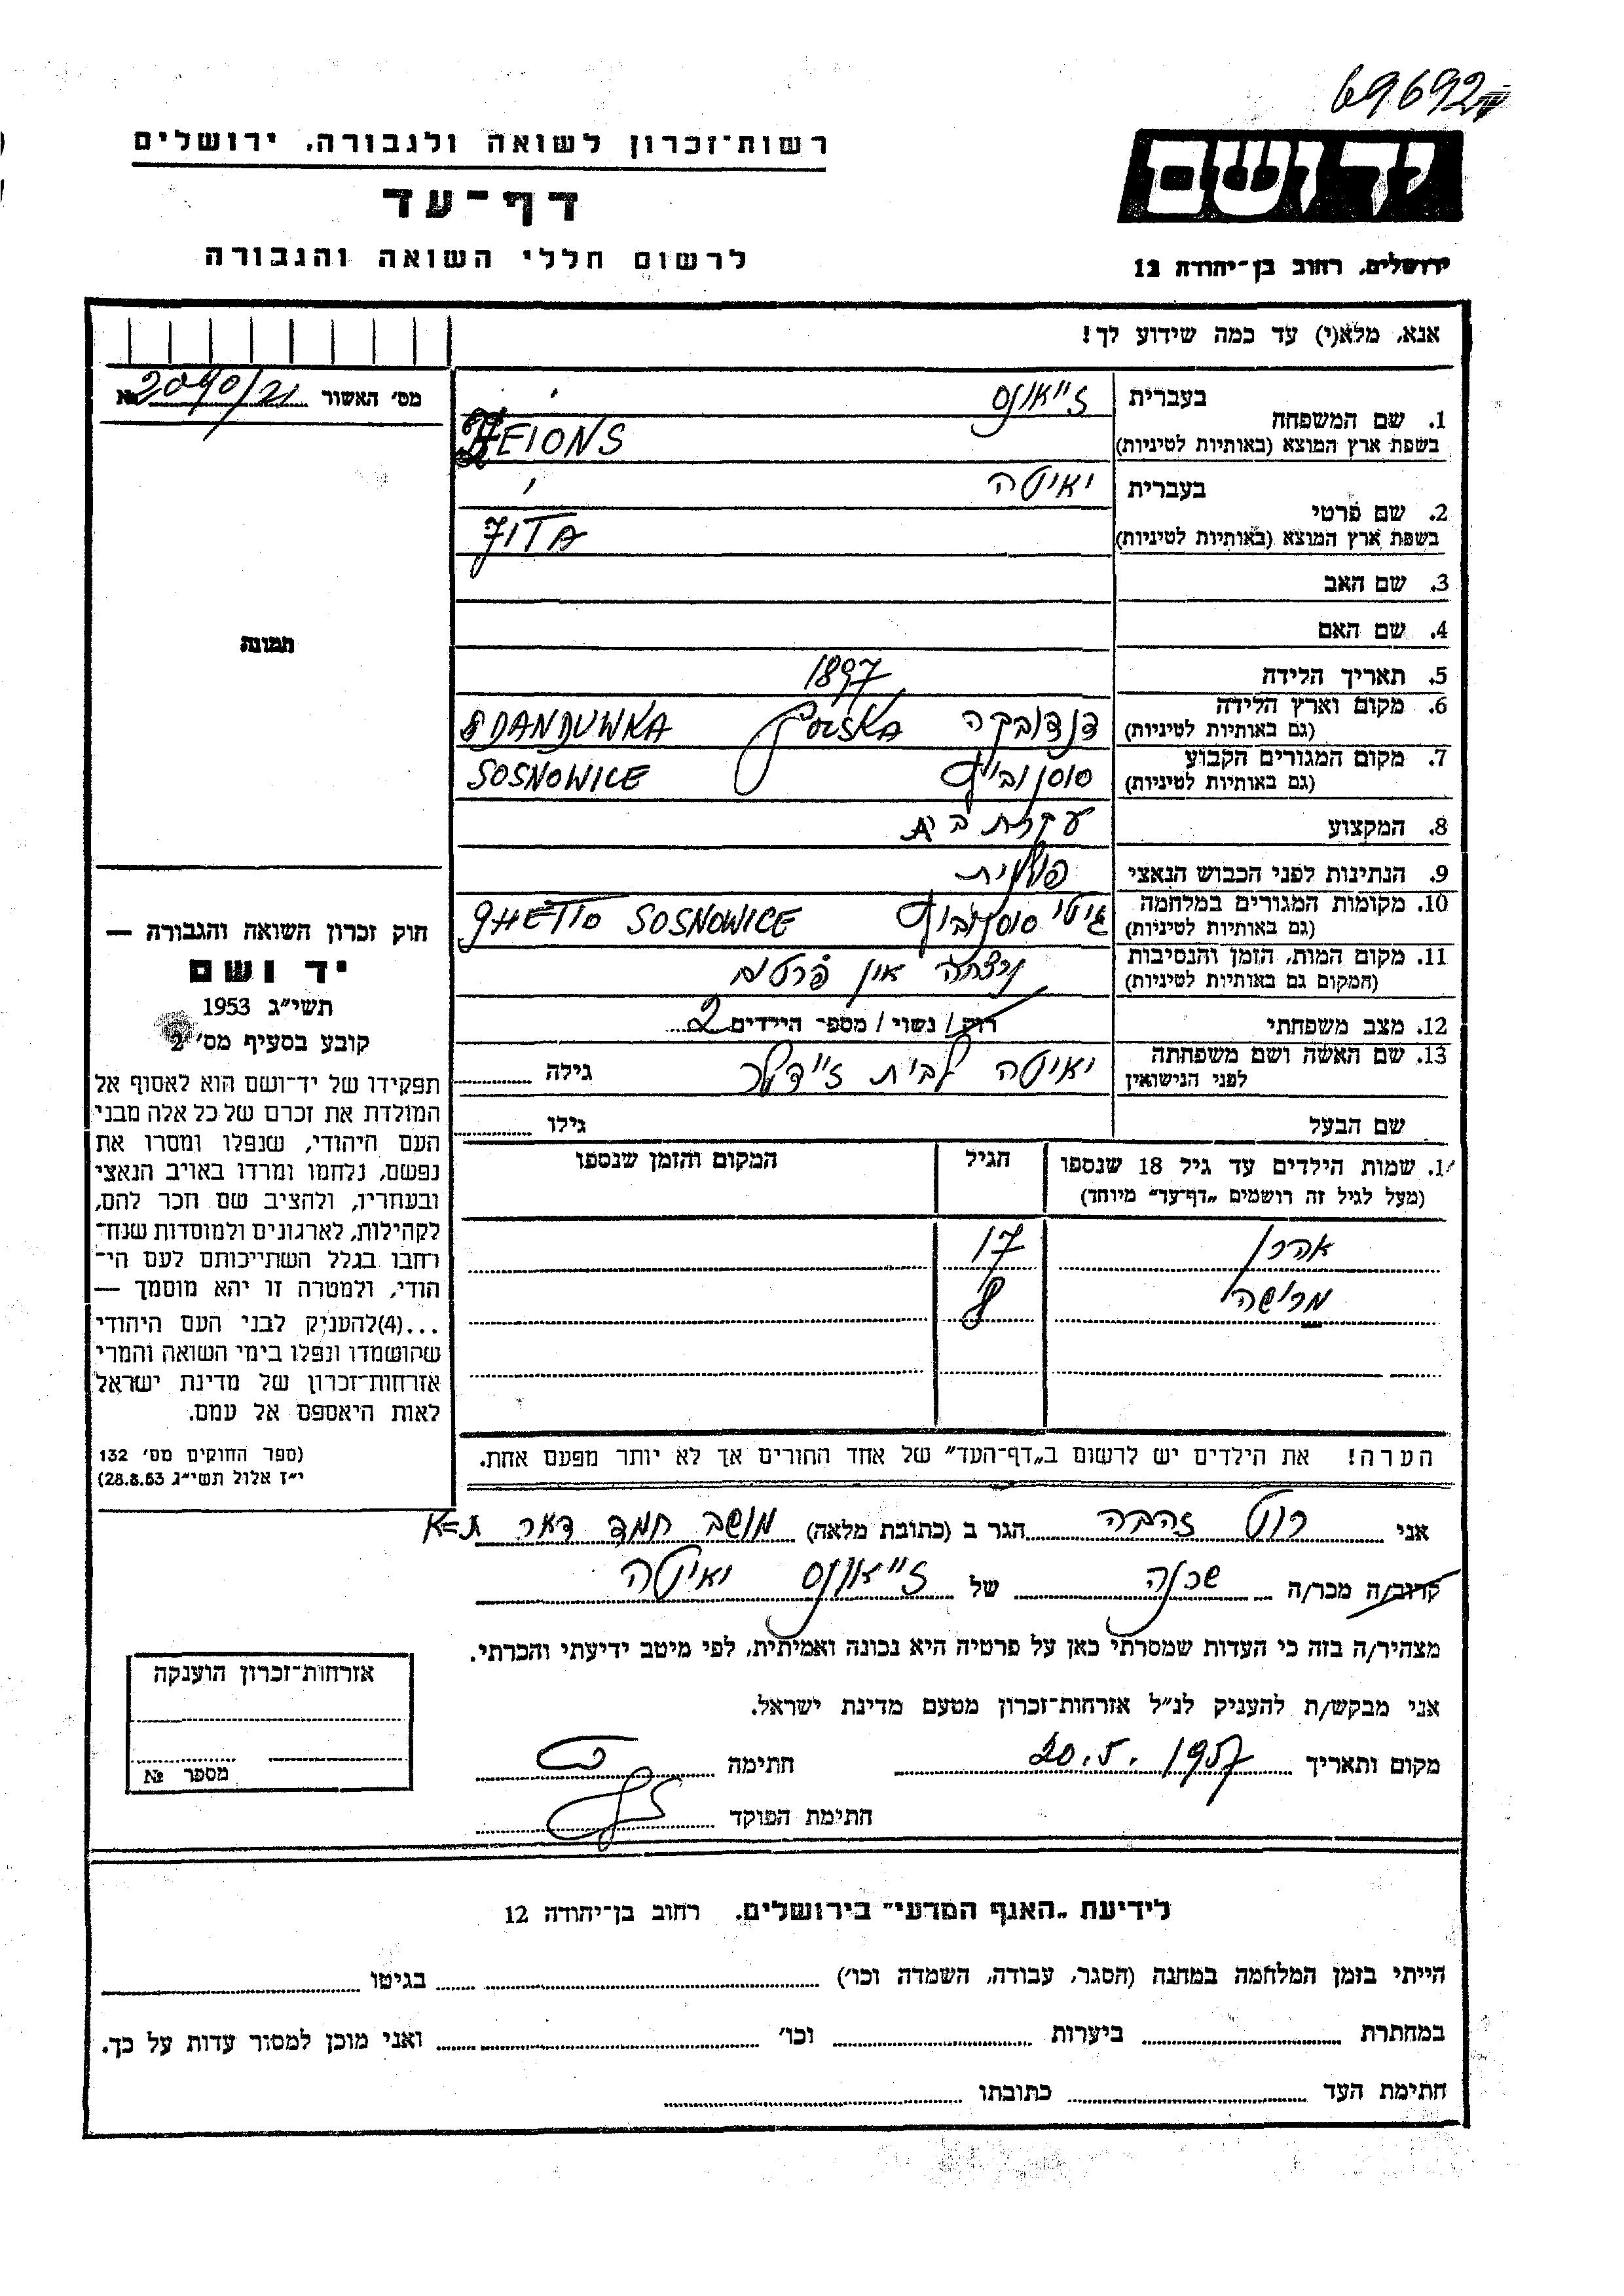 69692
רשות־זכרון לשואה ולגבורה, ירושלים
דף־עד
לרשום חללי השואה והגבורה
יד ושם
ירושלים, רחוב בן־יהודה 12
אנא, מלא(י) עד כמה שידוע לך!
מס׳ האשור 2040/21 №
1. שם המשפחה
בעברית זייאונס
בשפת ארץ המוצא (באותיות לטיניות) ZEIONS
2. שם פרטי
בעברית יאיטה
בשפת ארץ המוצא (באותיות לטיניות) JITA
3. שם האב
4. שם האם
5. תאריך הלידה 1897
6. מקום וארץ הלידה דנדובקה POLSKA DANDUWKA
(גם באותיות לטיניות)
7. מקום המגורים הקבוע סוסנוביץ SOSNOWICE
(גם באותיות לטיניות)
8. המקצוע עקרת בית
9. הנתינות לפני הכבוש הנאצי פולנית
10. מקומות המגורים במלחמה גיטו סוסנוביץ GHETTO SOSNOWICE
(גם באותיות לטיניות)
11. מקום המות, הזמן והנסיבות נרצחה אין פרטים
(המקום גם באותיות לטיניות)
12. מצב משפחתי רוק/ נשוי / מספר הילדים 2
13. שם האשה ושם משפחתה יאיטה לבית זיידלר גילה
לפני הנישואין
שם הבעל גילו
14. שמות הילדים עד גיל 18 שנספו
(מעל לגיל זה רושמים „דף־עד״ מיוחד)
הגיל
המקום והזמן שנספו
אהרן 17
מרישה 8
הערה! את הילדים יש לרשום ב„דף־העד״ של אחד החורים אך לא יותר מפעם אחת.
תמונה
חוק זכרון השואה והגבורה —
יד ושם
תשי״ג 1953
קובע בסעיף מס׳ 2
תפקידו של יד־ושם הוא לאסוף אל
המולדת את זכרם של כל אלה מבני
העם היהודי, שנפלו ומסרו את
נפשם, נלחמו ומרדו באויב הנאצי
ובעוזריו, ולהציב שם וזכר להם,
לקהילות, לארגונים ולמוסדות שנח־
רחבו בגלל השתייכותם לעם הי־
הודי, ולמטרה זו יהא מוסמך —
...(4)להעניק לבני העם היהודי
שהושמדו ונפלו בימי השואה והמרי
אזרחות־זכרון של מדינת ישראל
לאות היאספם אל עמם.
(ספר החוקים מס׳ 132
י״ז אלול תשי״ג 28.8.53)
אני רוט זהבה הגר ב (כתובת מלאה) מושב חמד דאר ת-א
קרוב/ה מכר/ה שכנה של זייאונס יאיטה
מצהיר/ה בזה כי העדות שמסרתי כאן על פרטיה היא נכונה ואמיתית, לפי מיטב ידיעתי והכרתי.
אני מבקש/ת להעניק לנ״ל אזרחות־זכרון מטעם מדינת ישראל.
מקום ותאריך 20.5.1957 חתימה
חתימת הפוקד
אזרחות־זכרון הוענקה
מספר №
לידיעת „האגף המדעי״ בירושלים, רחוב בן־יהודה 12
הייתי בזמן המלחמה במחנה (הסגר, עבודה, השמדה וכו׳) בגיטו
במחתרת ביערות וכו׳ ואני מוכן למסור עדות על כך.
חתימת העד כתובתו